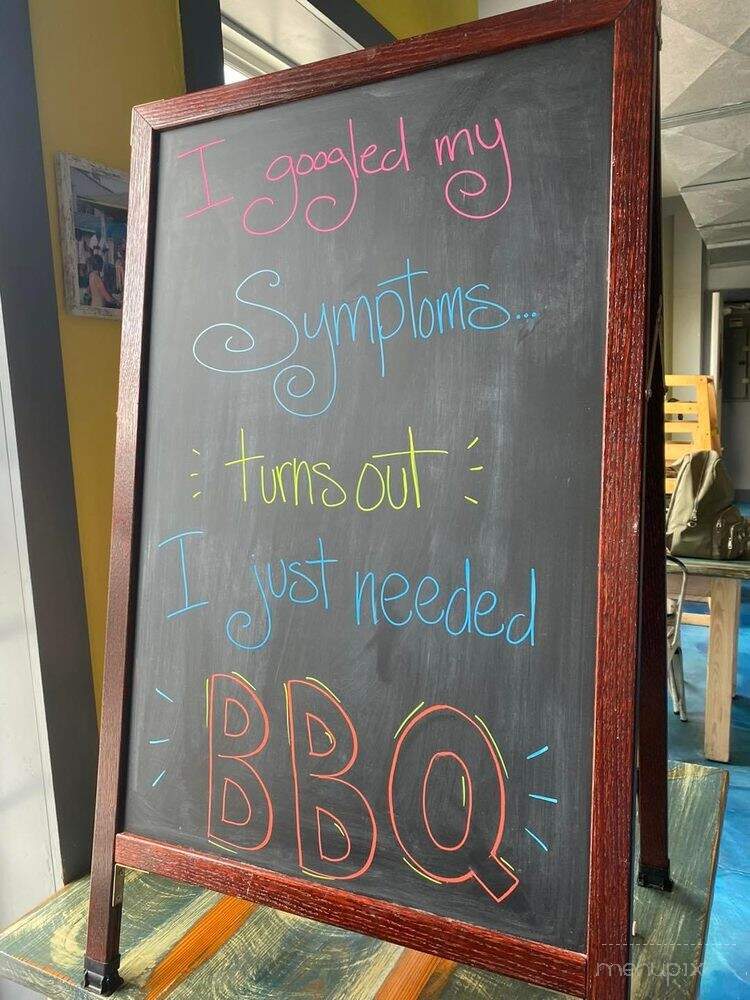 I googled my
Symptoms...
turns out
I just needed
BBQ
menupix